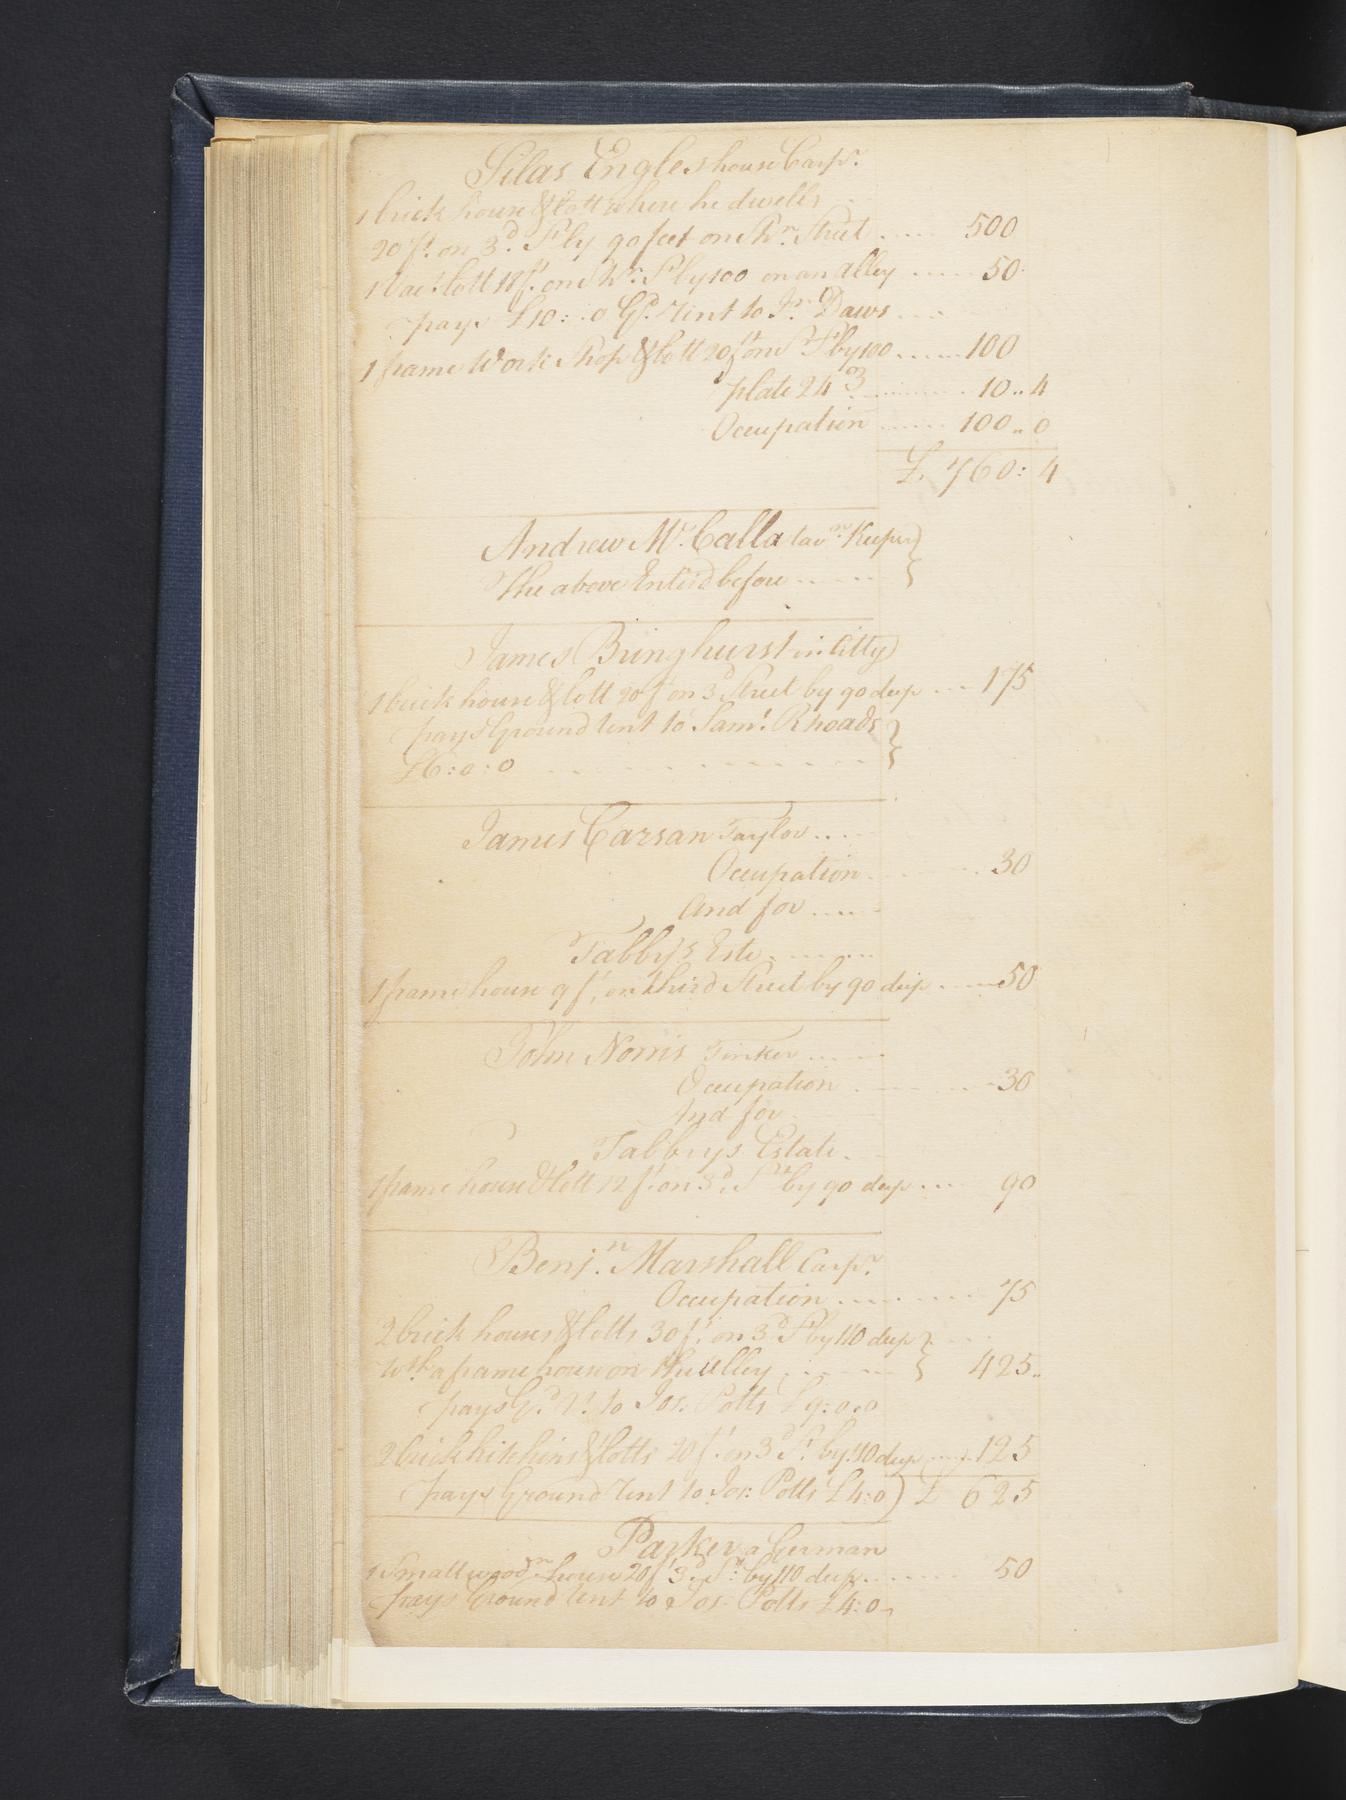 Silas Engles house Carpr.
1 brick house & lott where he dwells
20 ft. on 3d. St by 90 feet on Shn. Street ..... 500
1 Vact. lott 18 ft. on Shn. St by 100 on an alley ..... 50
pays £10:..0 Gd. rent to Jn. Daws ...
1 frame Work Shop & lott 20 ft on Do St by 100 ..... 100
plate 24 ℥ ..... 10.. 4
Occupation ..... 100.. 0
£ 760: 4
Andrew Mc. Calla tavn. Keeper }
the above Enter'd before ..... }
James Bringhurst in Citty
1 brick house & lott 20 f on 3d Street by 90 deep ... 175
pays Ground rent to Saml. Rhoads }
£6:0:0 ..... }
James Carsan Taylor ....
Occupation ..... 30
And for .....
Tabby's Este ......
1 frame house 9 ft. on third Street by 90 deep ..... 50
John Norris Tinker .....
Occupation ..... 30
And for
Tabbys Estate.
1 frame house & lott 12 ft. on 3d. St by 90 deep .... 90
Benjn. Marshall Carpr.
Occupation ..... 75
2 brick houses & lotts 30 ft. on 3d St by 110 deep }
wth a frame house on the alley ..... } 425..
pays Gd. Rt. to Jos: Potts £9:0:0
2 brick kitchins & lotts 20 ft. on 3d St. by 110 deep ..... 125
pays Ground rent to Jos: Potts £4:0 ) £ 625
Parker a German
1 Small woodn house 20 ft 3d. St: by 110 deep ...... 50
pays Ground rent to Jos: Potts £4:0